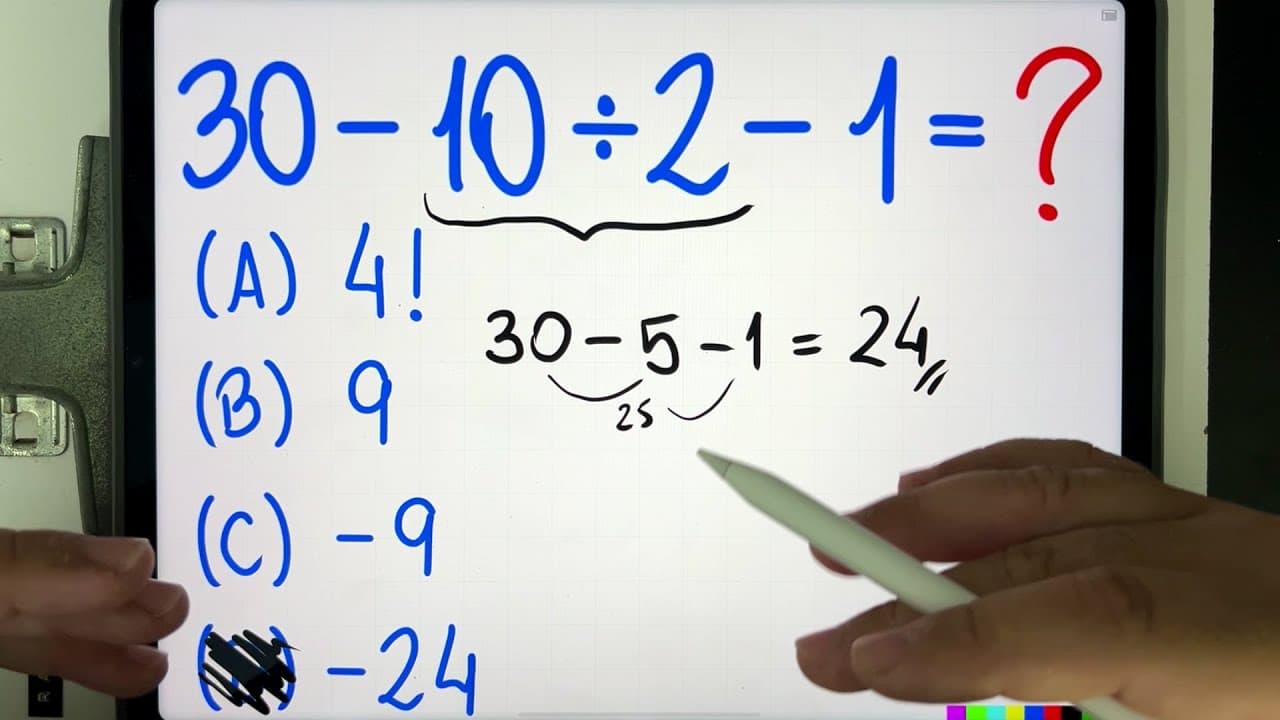 30 − 10 ÷ 2 − 1 = ?
(A) 4!
30 − 5 − 1 = 24
25
(B) 9
(C) −9
−24